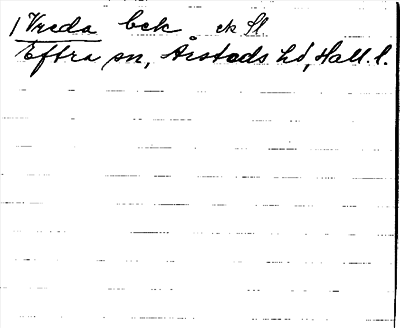 1 Vreda bck ek Sl
Eftra sn, Årstads hd, Hall. l.